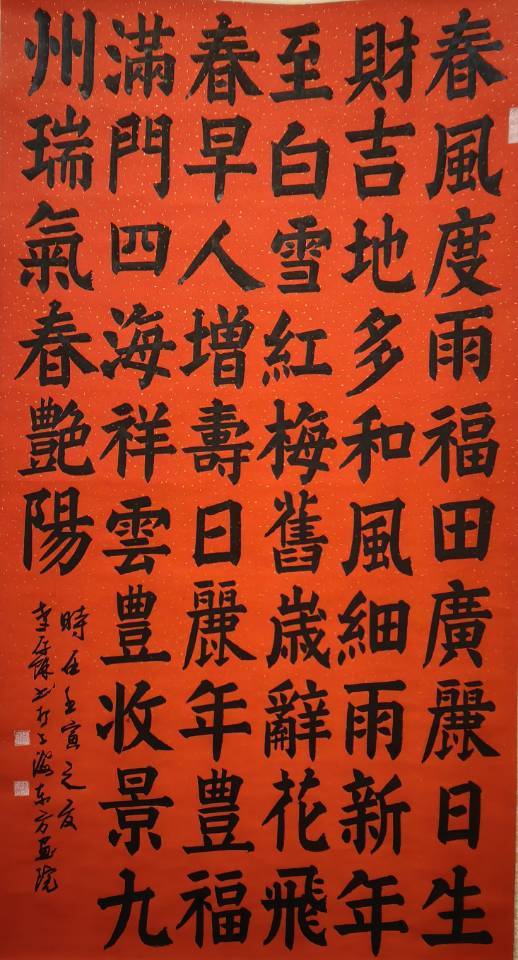 春風度雨福田廣麗日生
財吉地多和風細雨新年
至白雪紅梅舊歲辭花飛
春早人增壽日麗年豊福
滿門四海祥雲豊收景九
州瑞氣春艷陽
時在壬寅之夏
李存謀书於上海东方画院